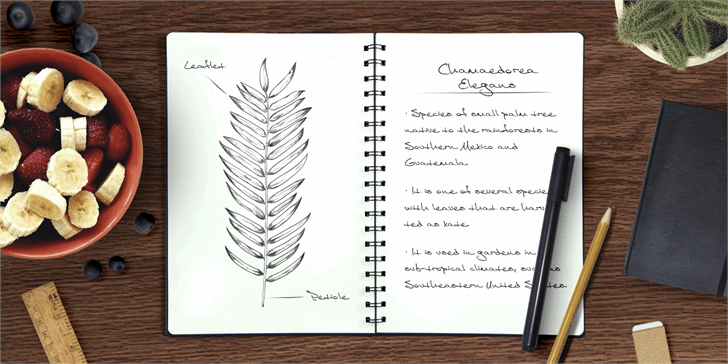 Leaflet
Petiole
Chamaedorea
Elegans
· Species of small palm tree
native to the rainforests in
Southern Mexico and
Guatemala.
· It is one of several species
with leaves that are harv
ted as xate
· It is used in gardens in
sub-tropical climates, such as
Southeastern United States.